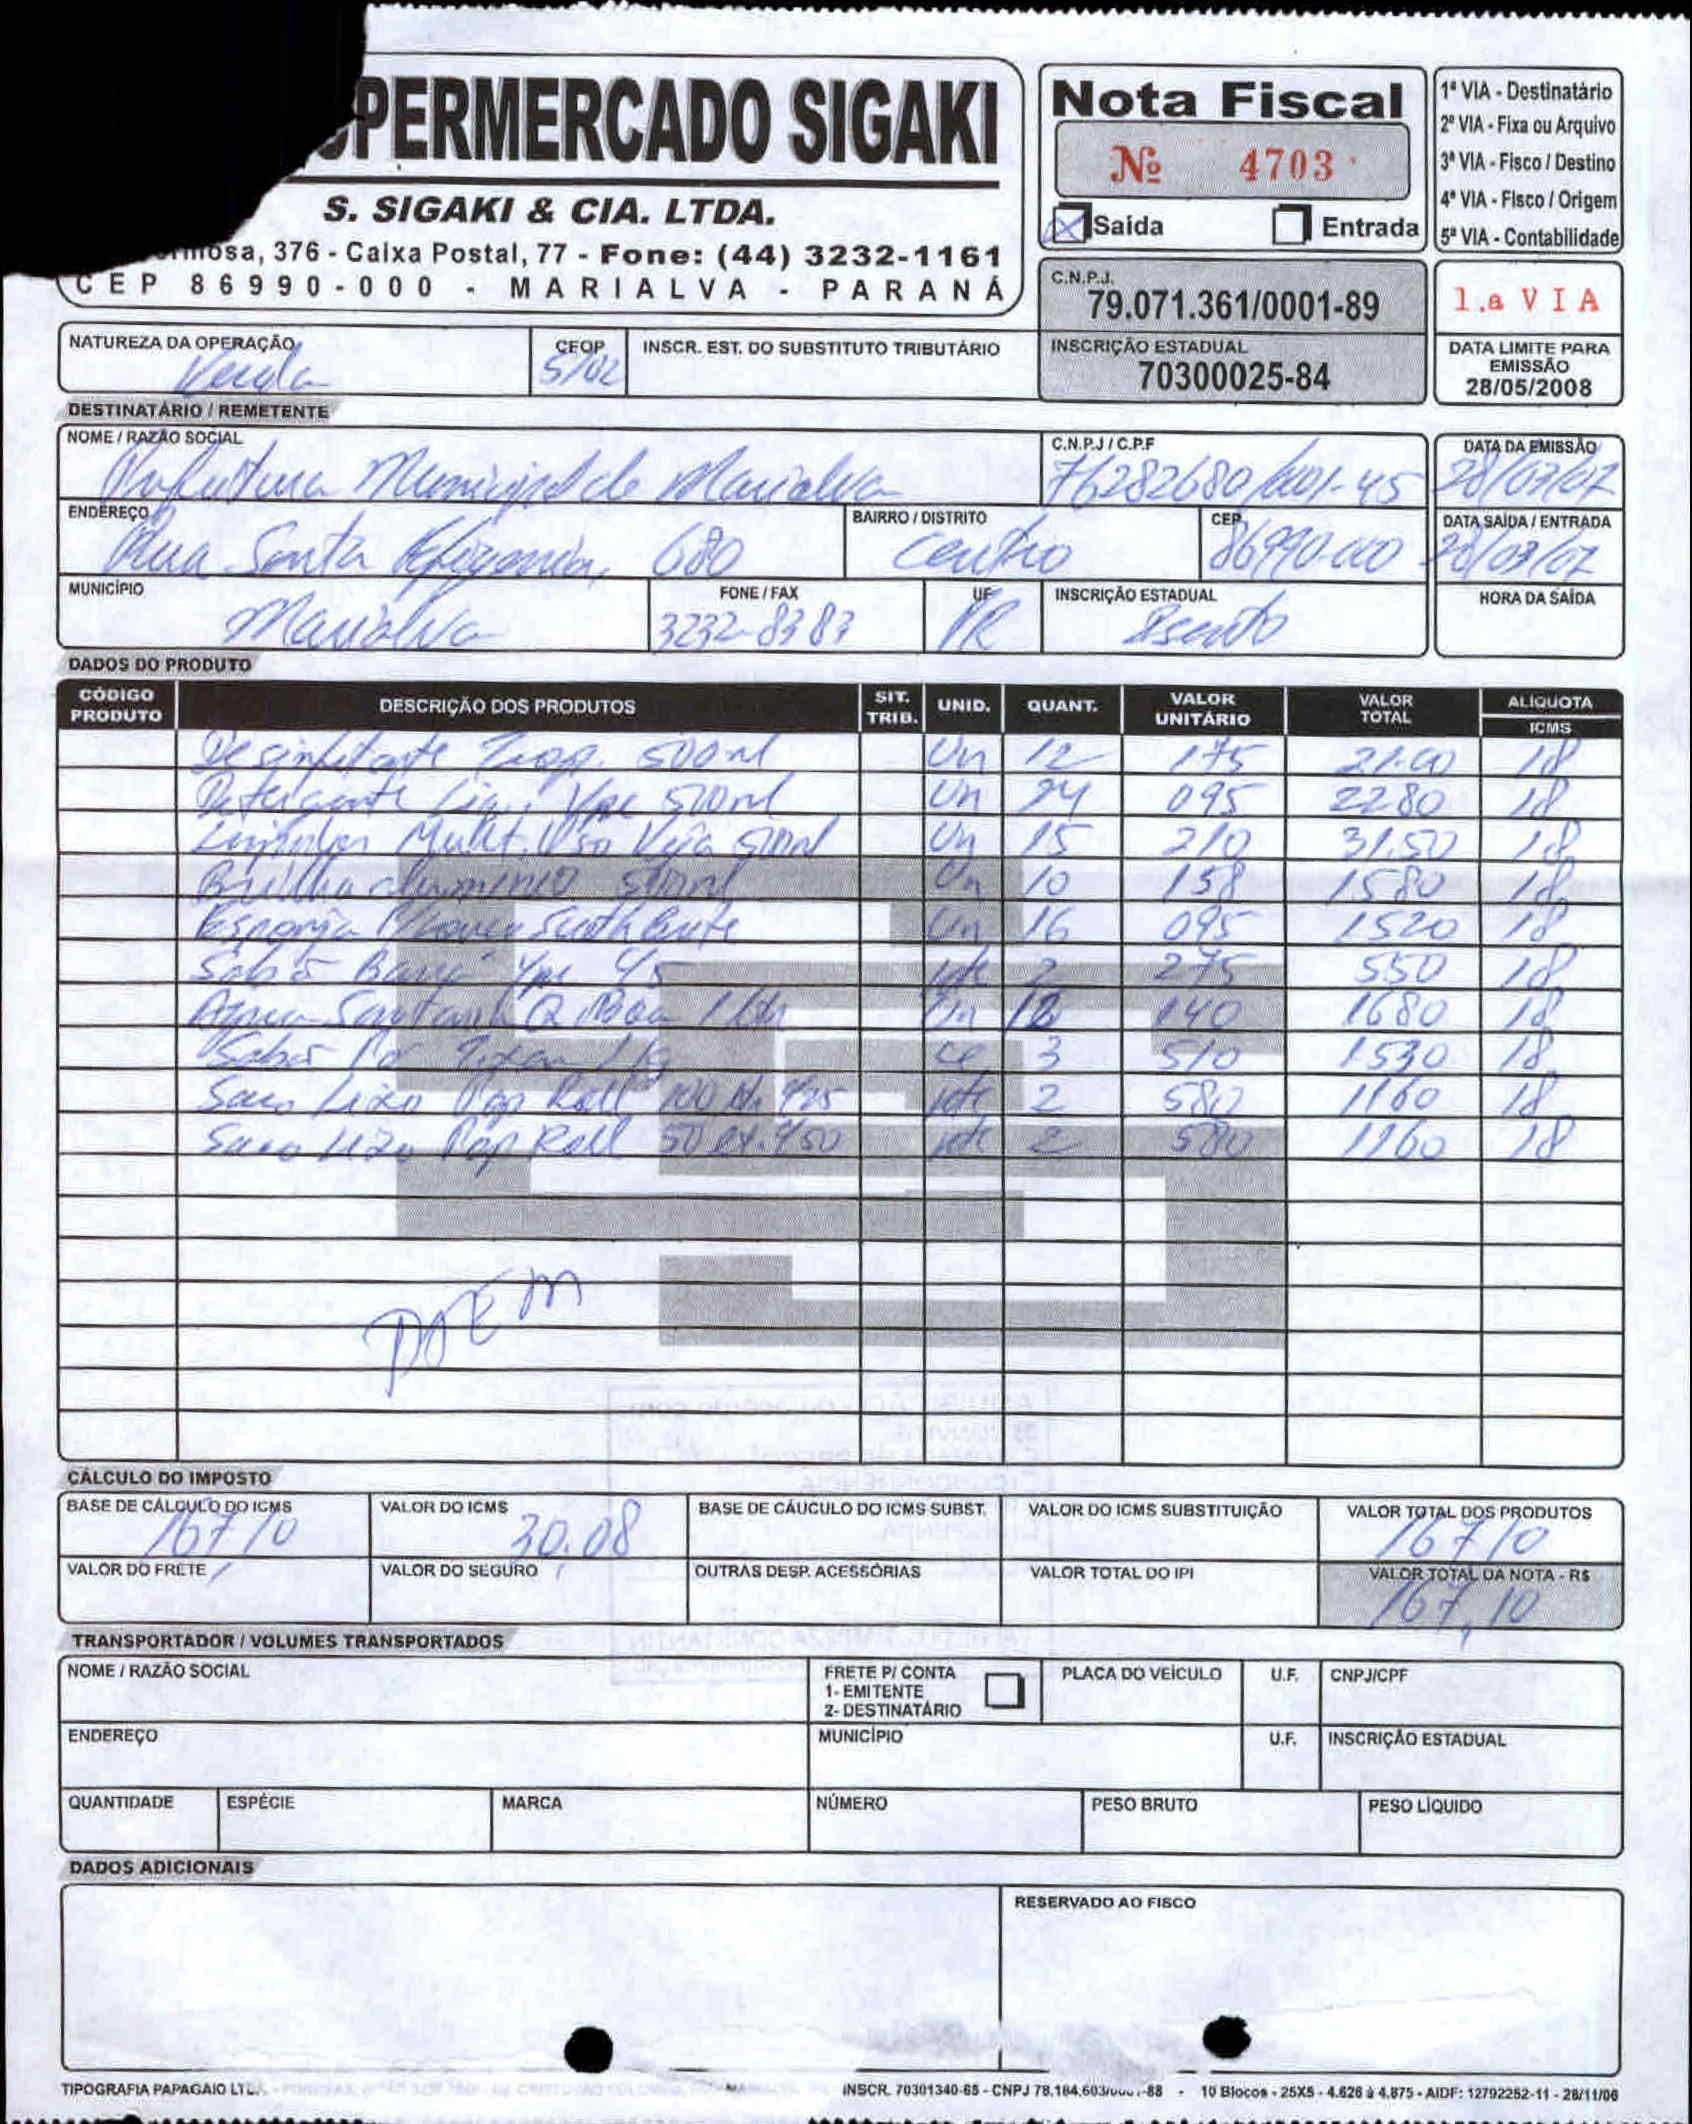 PERMERCADO SIGAKI
S. SIGAKI & CIA. LTDA.
mosa, 376 - Caixa Postal, 77 - Fone: (44) 3232-1161
CEP 86990-000 - MARIALVA - PARANÁ
Nota Fiscal
Nº 4703
Saída Entrada
1ª VIA - Destinatário
2ª VIA - Fixa ou Arquivo
3ª VIA - Fisco / Destino
4ª VIA - Fisco / Origem
5ª VIA - Contabilidade
C.N.P.J.
79.071.361/0001-89
1.a VIA
NATUREZA DA OPERAÇÃO CFOP INSCR. EST. DO SUBSTITUTO TRIBUTÁRIO
Venda 5102
INSCRIÇÃO ESTADUAL
70300025-84
DATA LIMITE PARA
EMISSÃO
28/05/2008
DESTINATÁRIO / REMETENTE
NOME / RAZÃO SOCIAL C.N.P.J / C.P.F DATA DA EMISSÃO
Prefeitura Municipal de Marialva 76282680/001-45 28/03/07
ENDEREÇO BAIRRO / DISTRITO CEP DATA SAÍDA / ENTRADA
Rua Santa Efigenia, 680 Centro 86990-000 28/03/07
MUNICÍPIO FONE / FAX UF INSCRIÇÃO ESTADUAL HORA DA SAÍDA
Marialva 3232-8383 PR Isento
DADOS DO PRODUTO
CÓDIGO PRODUTO DESCRIÇÃO DOS PRODUTOS SIT. TRIB. UNID. QUANT. VALOR UNITÁRIO VALOR TOTAL ALÍQUOTA ICMS
Desinfetante 500ml Un 12 175 21.00 18
Detergente Liq. Ype 500ml Un 24 095 2280 18
Limpador Mult. Uso Veja 500ml Un 15 210 31.50 18
Brilho aluminio 500ml Un 10 158 1580 18
Esponja Scoth Brite Un 16 095 1520 18
Sabão Barra Ype 275 550 18
Agua Sanitaria Q Boa 1 Un 12 140 1680 18
Sabão Pó Tixan 1 3 510 1530 18
Saco Lixo Pop Roll 100 2 580 1160 18
Saco Lixo Pop Roll 50 2 580 1160 18
DOEM
CÁLCULO DO IMPOSTO
BASE DE CÁLCULO DO ICMS VALOR DO ICMS BASE DE CÁUCULO DO ICMS SUBST. VALOR DO ICMS SUBSTITUIÇÃO VALOR TOTAL DOS PRODUTOS
167,10 30.08 167,10
VALOR DO FRETE VALOR DO SEGURO OUTRAS DESP. ACESSÓRIAS VALOR TOTAL DO IPI VALOR TOTAL DA NOTA - R$
167,10
TRANSPORTADOR / VOLUMES TRANSPORTADOS
NOME / RAZÃO SOCIAL FRETE P/ CONTA PLACA DO VEÍCULO U.F. CNPJ/CPF
1- EMITENTE
2- DESTINATÁRIO
ENDEREÇO MUNICÍPIO U.F. INSCRIÇÃO ESTADUAL
QUANTIDADE ESPÉCIE MARCA NÚMERO PESO BRUTO PESO LÍQUIDO
DADOS ADICIONAIS
RESERVADO AO FISCO
TIPOGRAFIA PAPAGAIO LTDA. INSCR. 70301340-65 - CNPJ 78.184.603/0001-88 - 10 Blocos - 25X5 - 4.626 à 4.875 - AIDF: 12792252-11 - 28/11/06